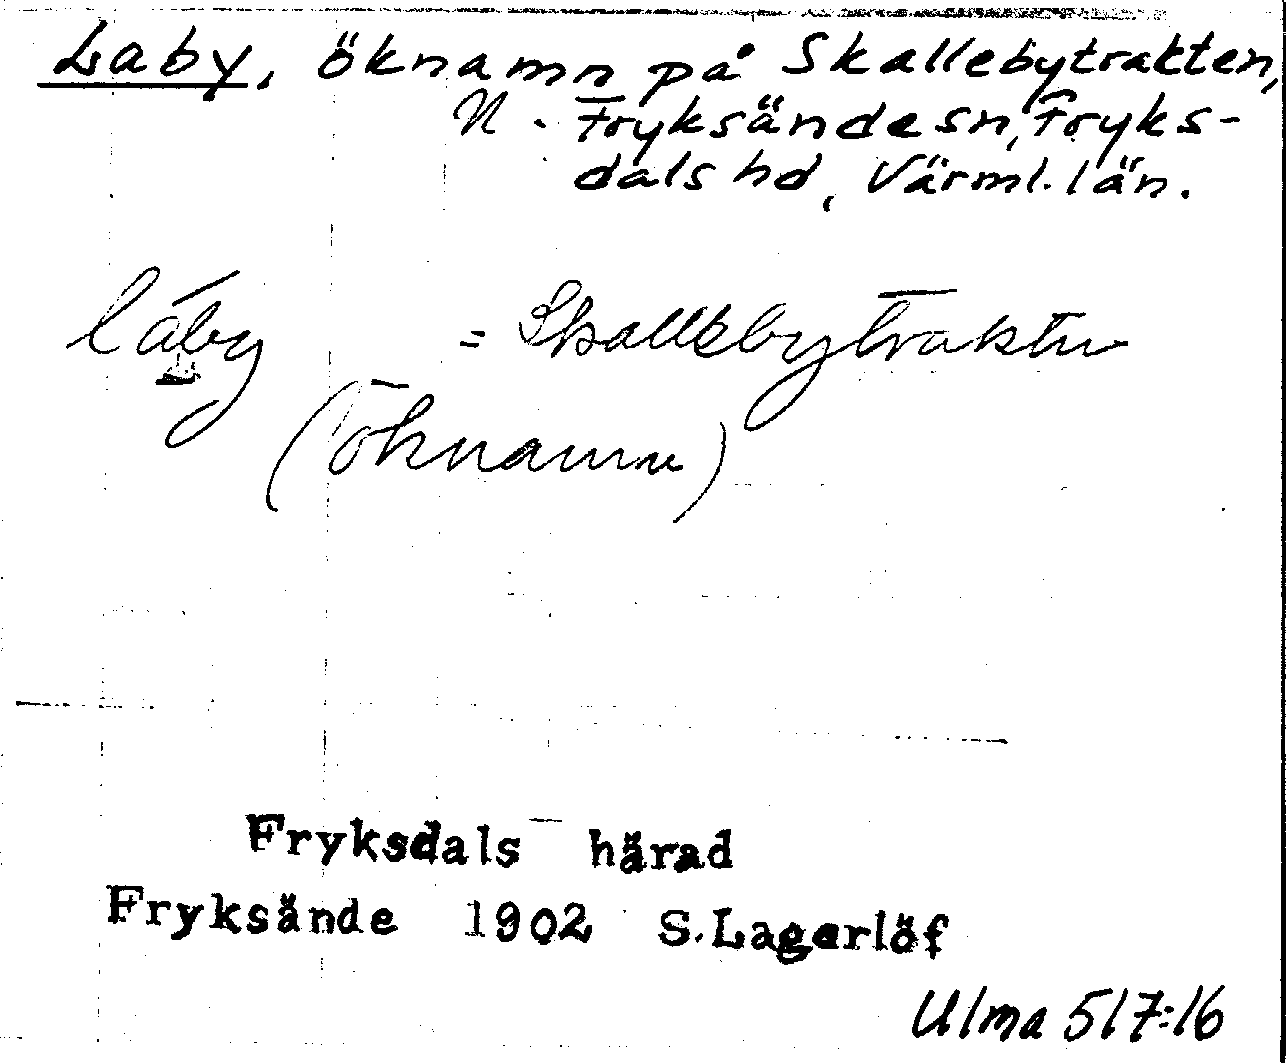 Laby, öknamn på Skallebytrakten,
N. Fryksände sn, Fryks-
dals hd, Värml. län.
láby = Skallebytrakten
(öknamn)
Fryksdals härad
Fryksände 1902 S. Lagerlöf
Ulma 517:16